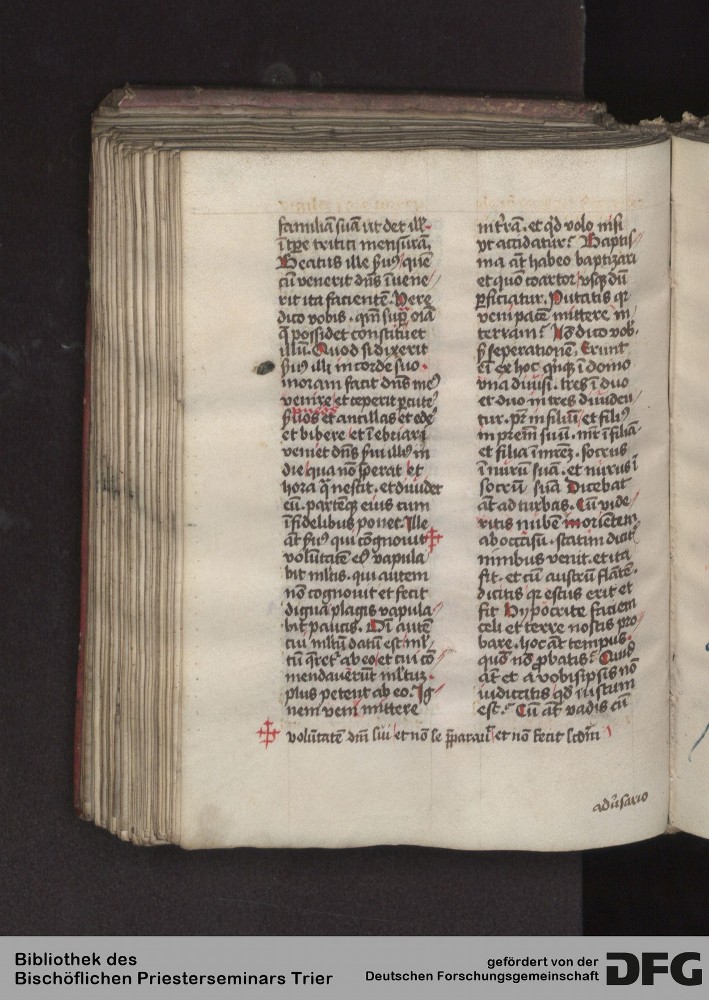 familiā suā ut det ill-
ī tpe tritici mensurā.
Beatus ille suꝰ quē
cū venerit dns īuene/
rit ita facientē. Vere
dico vobis. qm̄ sup oīa
q̄ possidet constituet
illū. Quod si dixerit
suꝰ ille in corde suo.
moram facit dns meꝰ
venire et ceperit pcuteˀ
suos et ancillas et edeˀ
et bibere et īebriari
veniet dns sui illiꝰ in
die qua nō sperat et
hora q̄ nescit. et diuidet
eū. partēq; eius cum
īfidelibus ponet. Ille
āt suꝰ qui cōgnouit ‡
voluntatē eiꝰ vapula
bit mltis. qui autem
nō cognouit et fecit
digna plagis vapula/
bit paucis. Oī autē
cui mltū datū est ml/
tū q̄ret ab eo et cui cō
mendauerūt mltū.
plus petent ab eo. Ig
nem veni mittere
‡ voluntatē dni sui et nō se pparauit et nō fecit scdm
in trā. et qd volo nisi
vt accidatur? Baptis/
ma āt habeo baptizari
et quō coartor usq; dū
pficiatur. Putatis qr
veni pacē mittere in/
terram? Nō dico vob.
s; seperationē. Erunt
eī ex hoc qnq; ī domo
vna diuisi. tres ī duo
et duo in tres diuiden
tur. pr in filiū et filiꝰ
in prem suū. mr ī filiā
et filia ī mrēz. socrus
ī nurū suā. et nurus ī
socrū suā. Dicebat
āt ad turbas. Cū vide/
ritis nubē in oriētem
ab occasu. statim dicitˀ
nimbus venit. et ita
fit. et cū austrū flantē.
dicitis qr estus erit et
fit. Hypocrite faciem
celi et terre nostis pro/
bare. hoc āt tempus.
quō nō pbatis? Quid
āt et a vobis ipsis nō
iudicatis qd iustum
est? Cū āt vadis cū
aduˀsario
Bibliothek des
Bischöflichen Priesterseminars Trier
gefördert von der
Deutschen Forschungsgemeinschaft
DFG